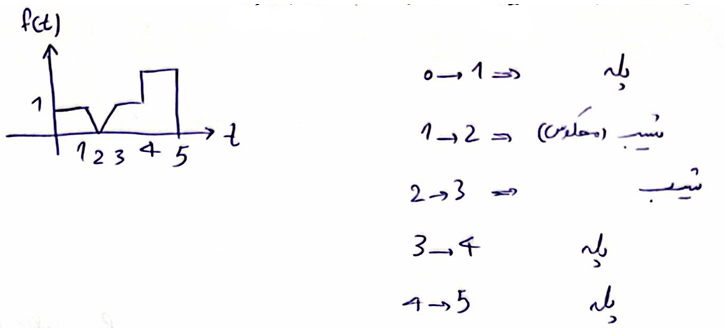 f(t)
1
1 2 3 4 5 t
0 → 1 ⇒ پله
1 → 2 ⇒ شیب (معکوس)
2 → 3 ⇒ شیب
3 → 4 پله
4 → 5 پله